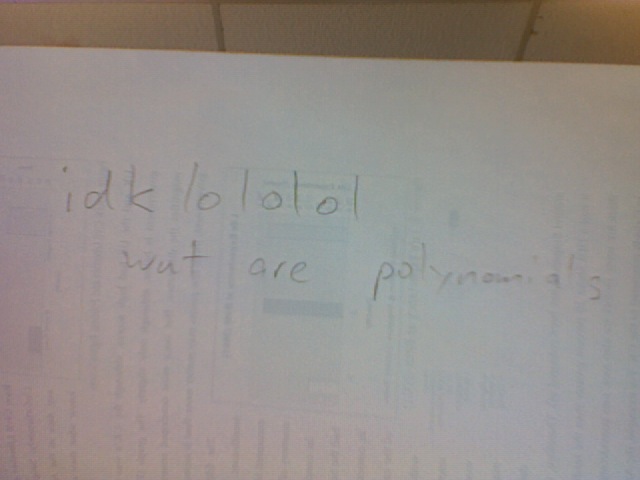 idk lolololol
wut are polynomials